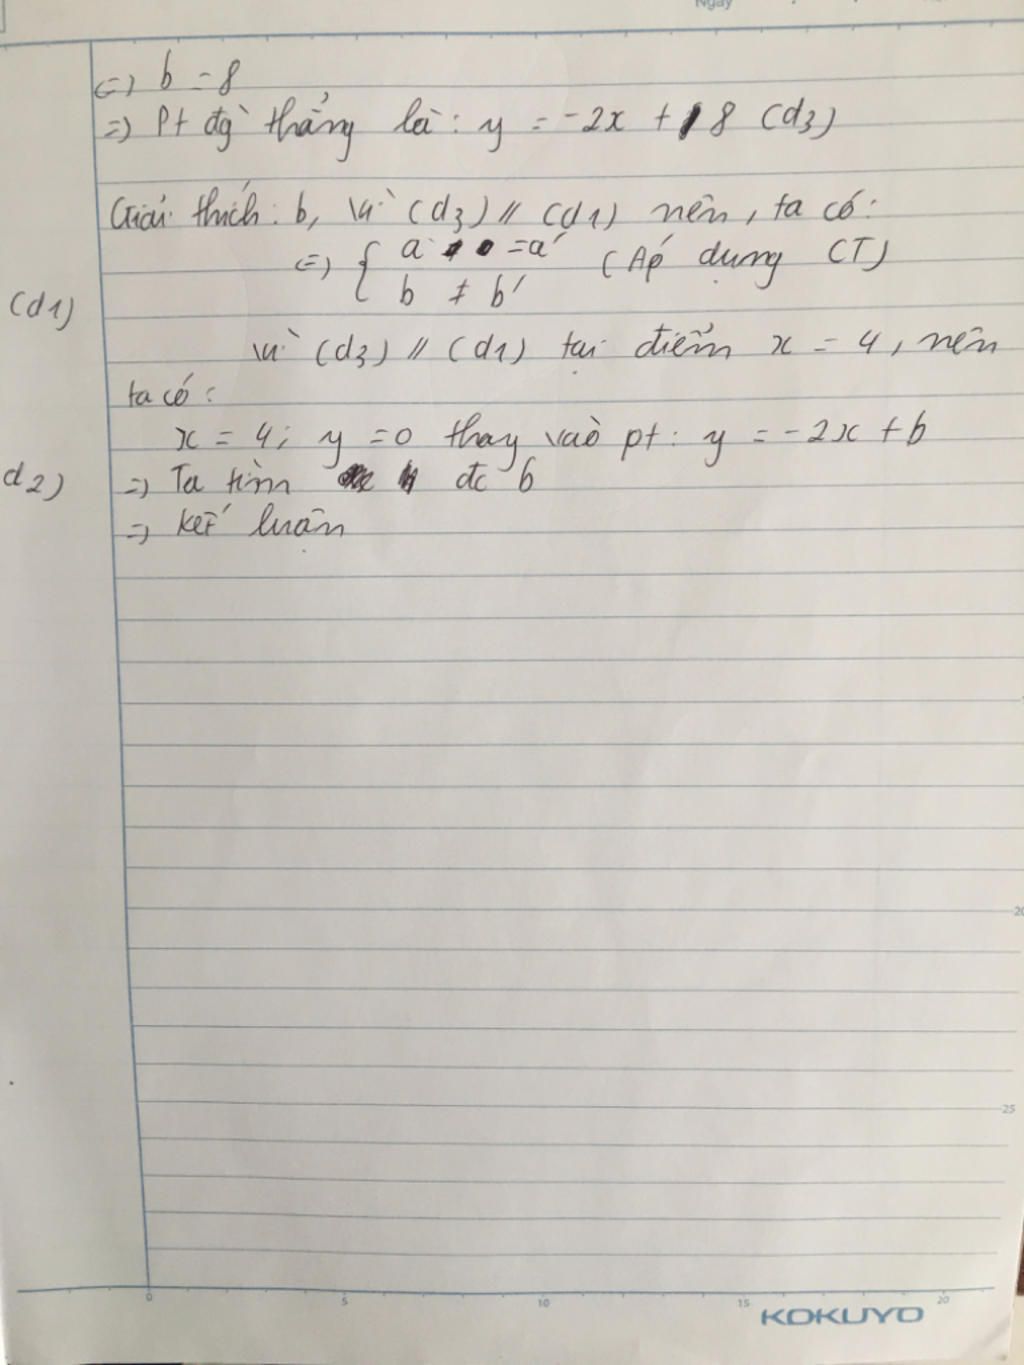 Ngày
<=> b = 8
=> Pt đg̀ thẳng là: y = -2x + 8 (d3)
Giải thích: b, Vì (d3) // (d1) nên, ta có:
<=> { a = a' (Áp dụng CT)
b ≠ b'
(d1)
Vì (d3) // (d1) tại điểm x = 4, nên
ta có:
x = 4; y = 0 thay vào pt: y = -2x + b
d2)
=> Ta tìm đc b
=> Kết luận
20
25
0 5 10 15 20
KOKUYO